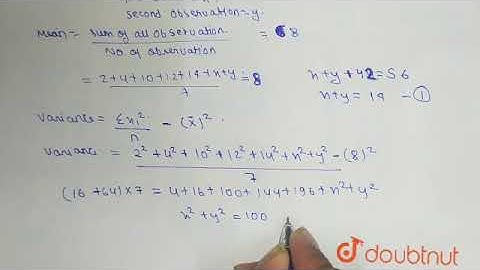 second observation = y.
Mean = Sum of all observation = 8
No of observation
= 2+4+10+12+14+x+y = 8
7
x+y+42=56
x+y = 14 - ①
Variance = Σxi² - (x̄)²
n
Variance = 2²+4²+10²+12²+14²+x²+y² - (8)²
7
(16+64)×7 = 4+16+100+144+196+x²+y²
x²+y² = 100
doubtnut